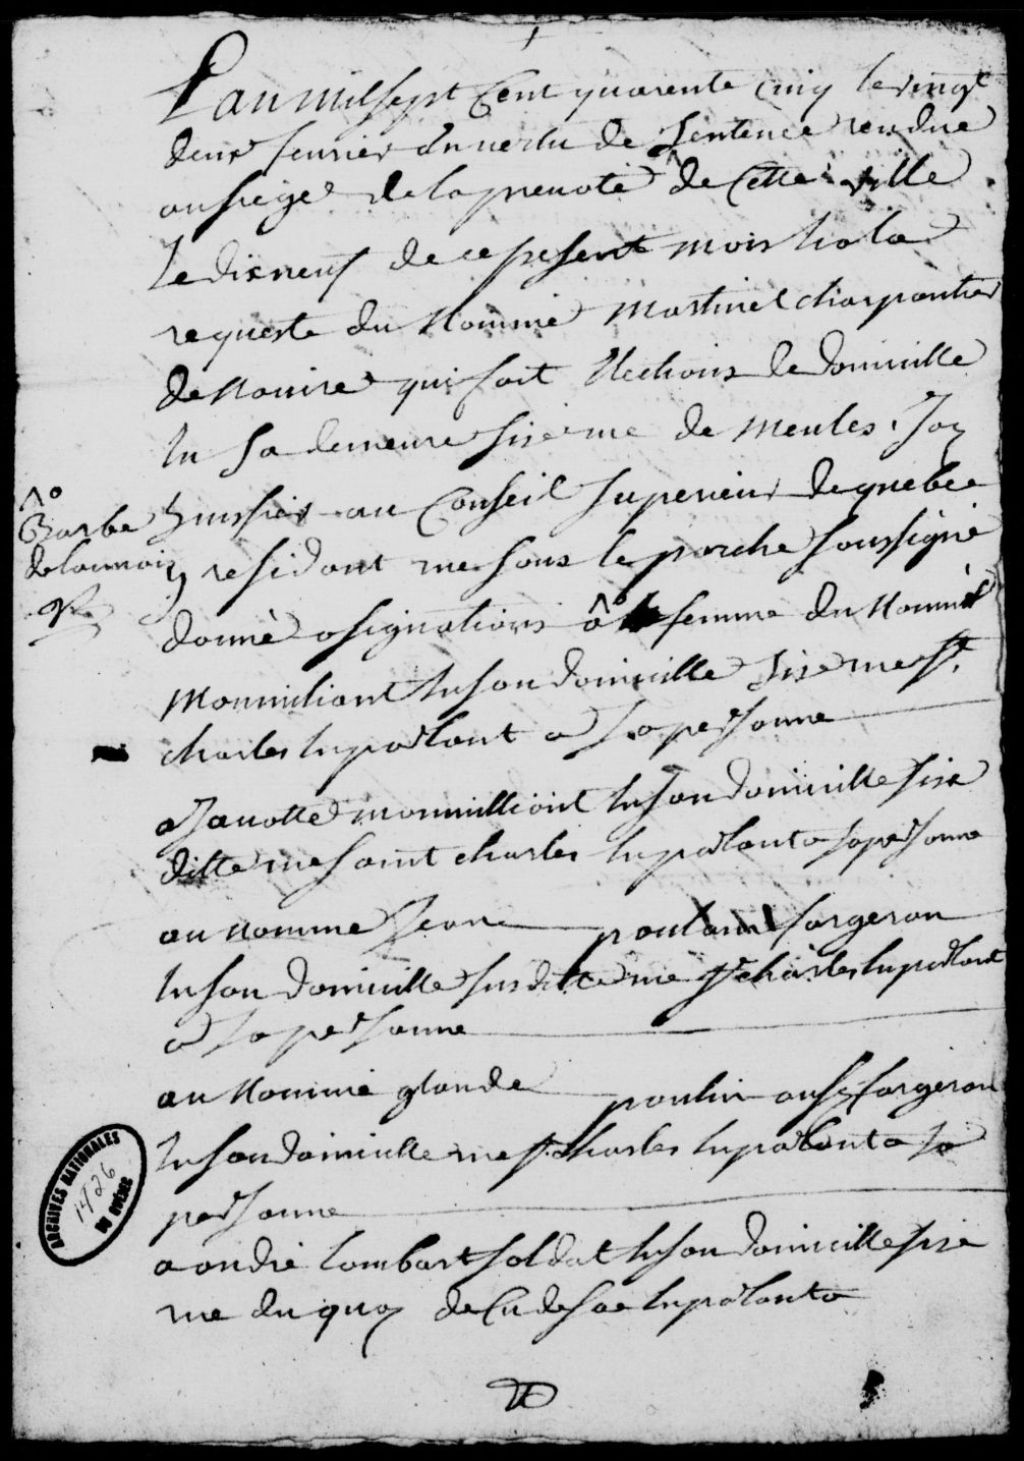 Lan mil sept Cent quarente cinq le vingt
deux feuvrier En vertu de Sentence rendue
au siege de la prevoté de Cette ville
le dixneuf de ce present mois et a la
requeste du Nommé Martinel charpantier
de Navire qui fait Elections de domicille
En sa demeure sise rue de Meules, Jay
huissier au Conseil superieur de quebec
y residant rue sous le porche soussigné
donné asignations â la femme du Nommé
Monmiliant En son domicille sise rue st.
charles En parlant a sa personne
a Janotte monmilliant En son domicille sise
ditte rue saint charles En parlant a sa personne
au Nomme Jean poulain forgeron
En son domicille sus ditte rue st charles En parlant
a sa personne
au Nommé glaude poulin ausy forgeron
En son domicille rue st. charles En parlant a sa
personne
a andré lombart soldat En son domicille sise
rue du quay de Cu de sac En parlant a
Barbe
delaunois
ARCHIVES NATIONALES
1426
DU QUÉBEC